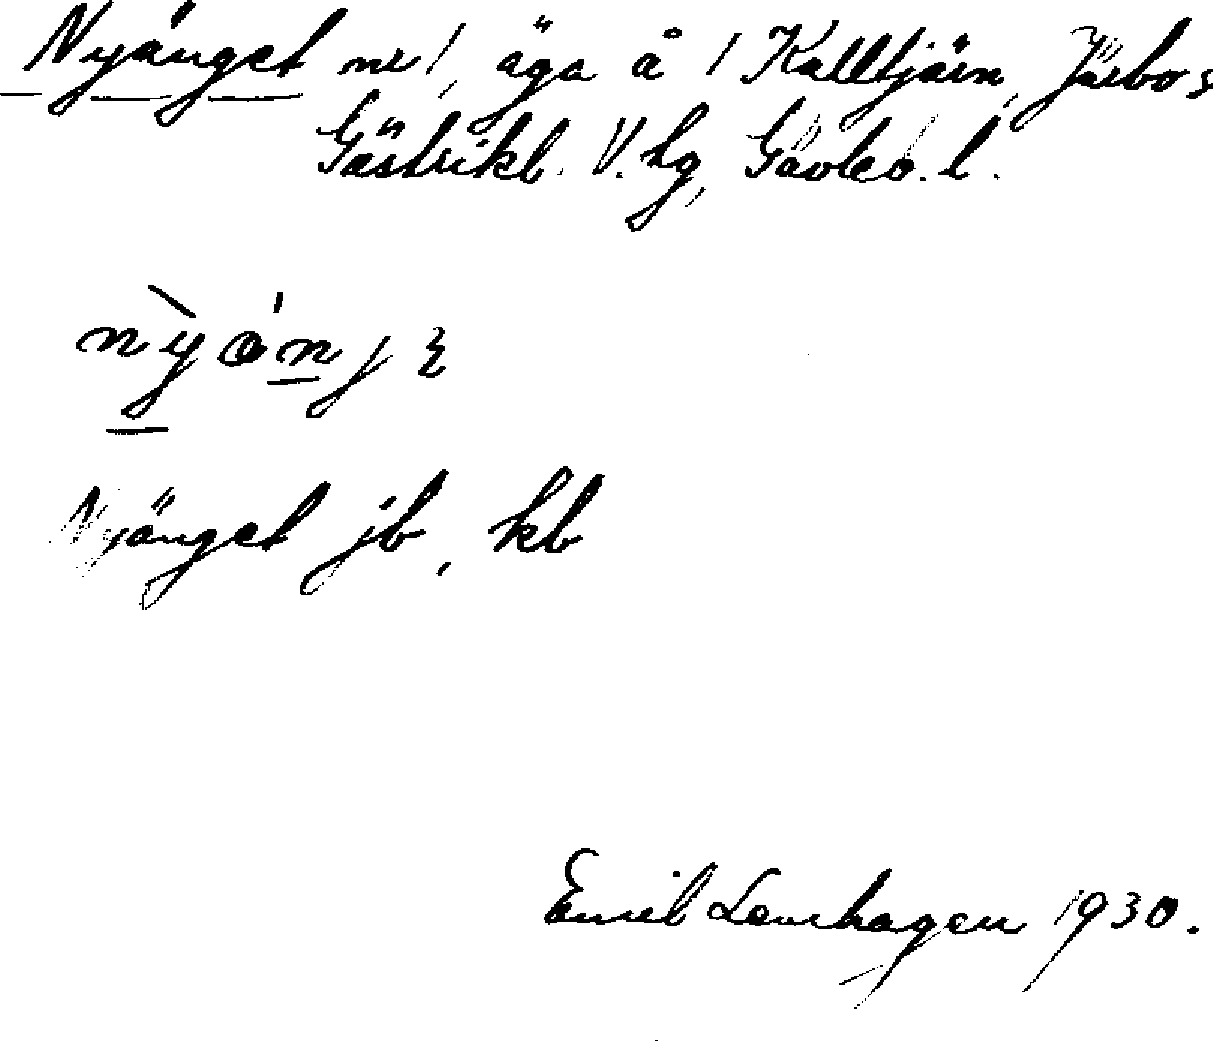 Nyänget nr 1, äga å 1 Kalltjärn, Järbo s
Gästrikl. V. hg, Gävleb. l.
nyänjɛ
Nyänget jb, kb
Emil Lenhagen 1930.